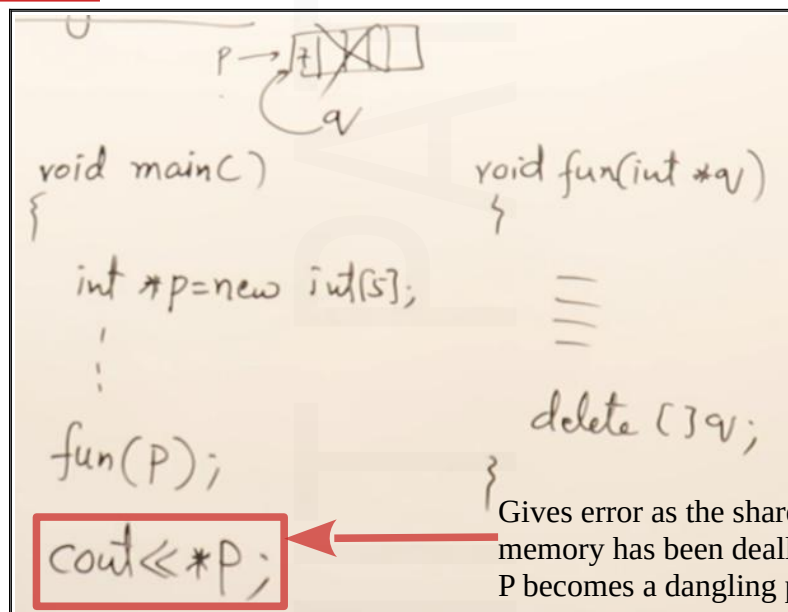 p → 7
q
void main()
{
int *p=new int[5];
fun(p);
cout<<*p;
void fun(int *q)
{
delete []q;
}
Gives error as the share
memory has been deall
P becomes a dangling p